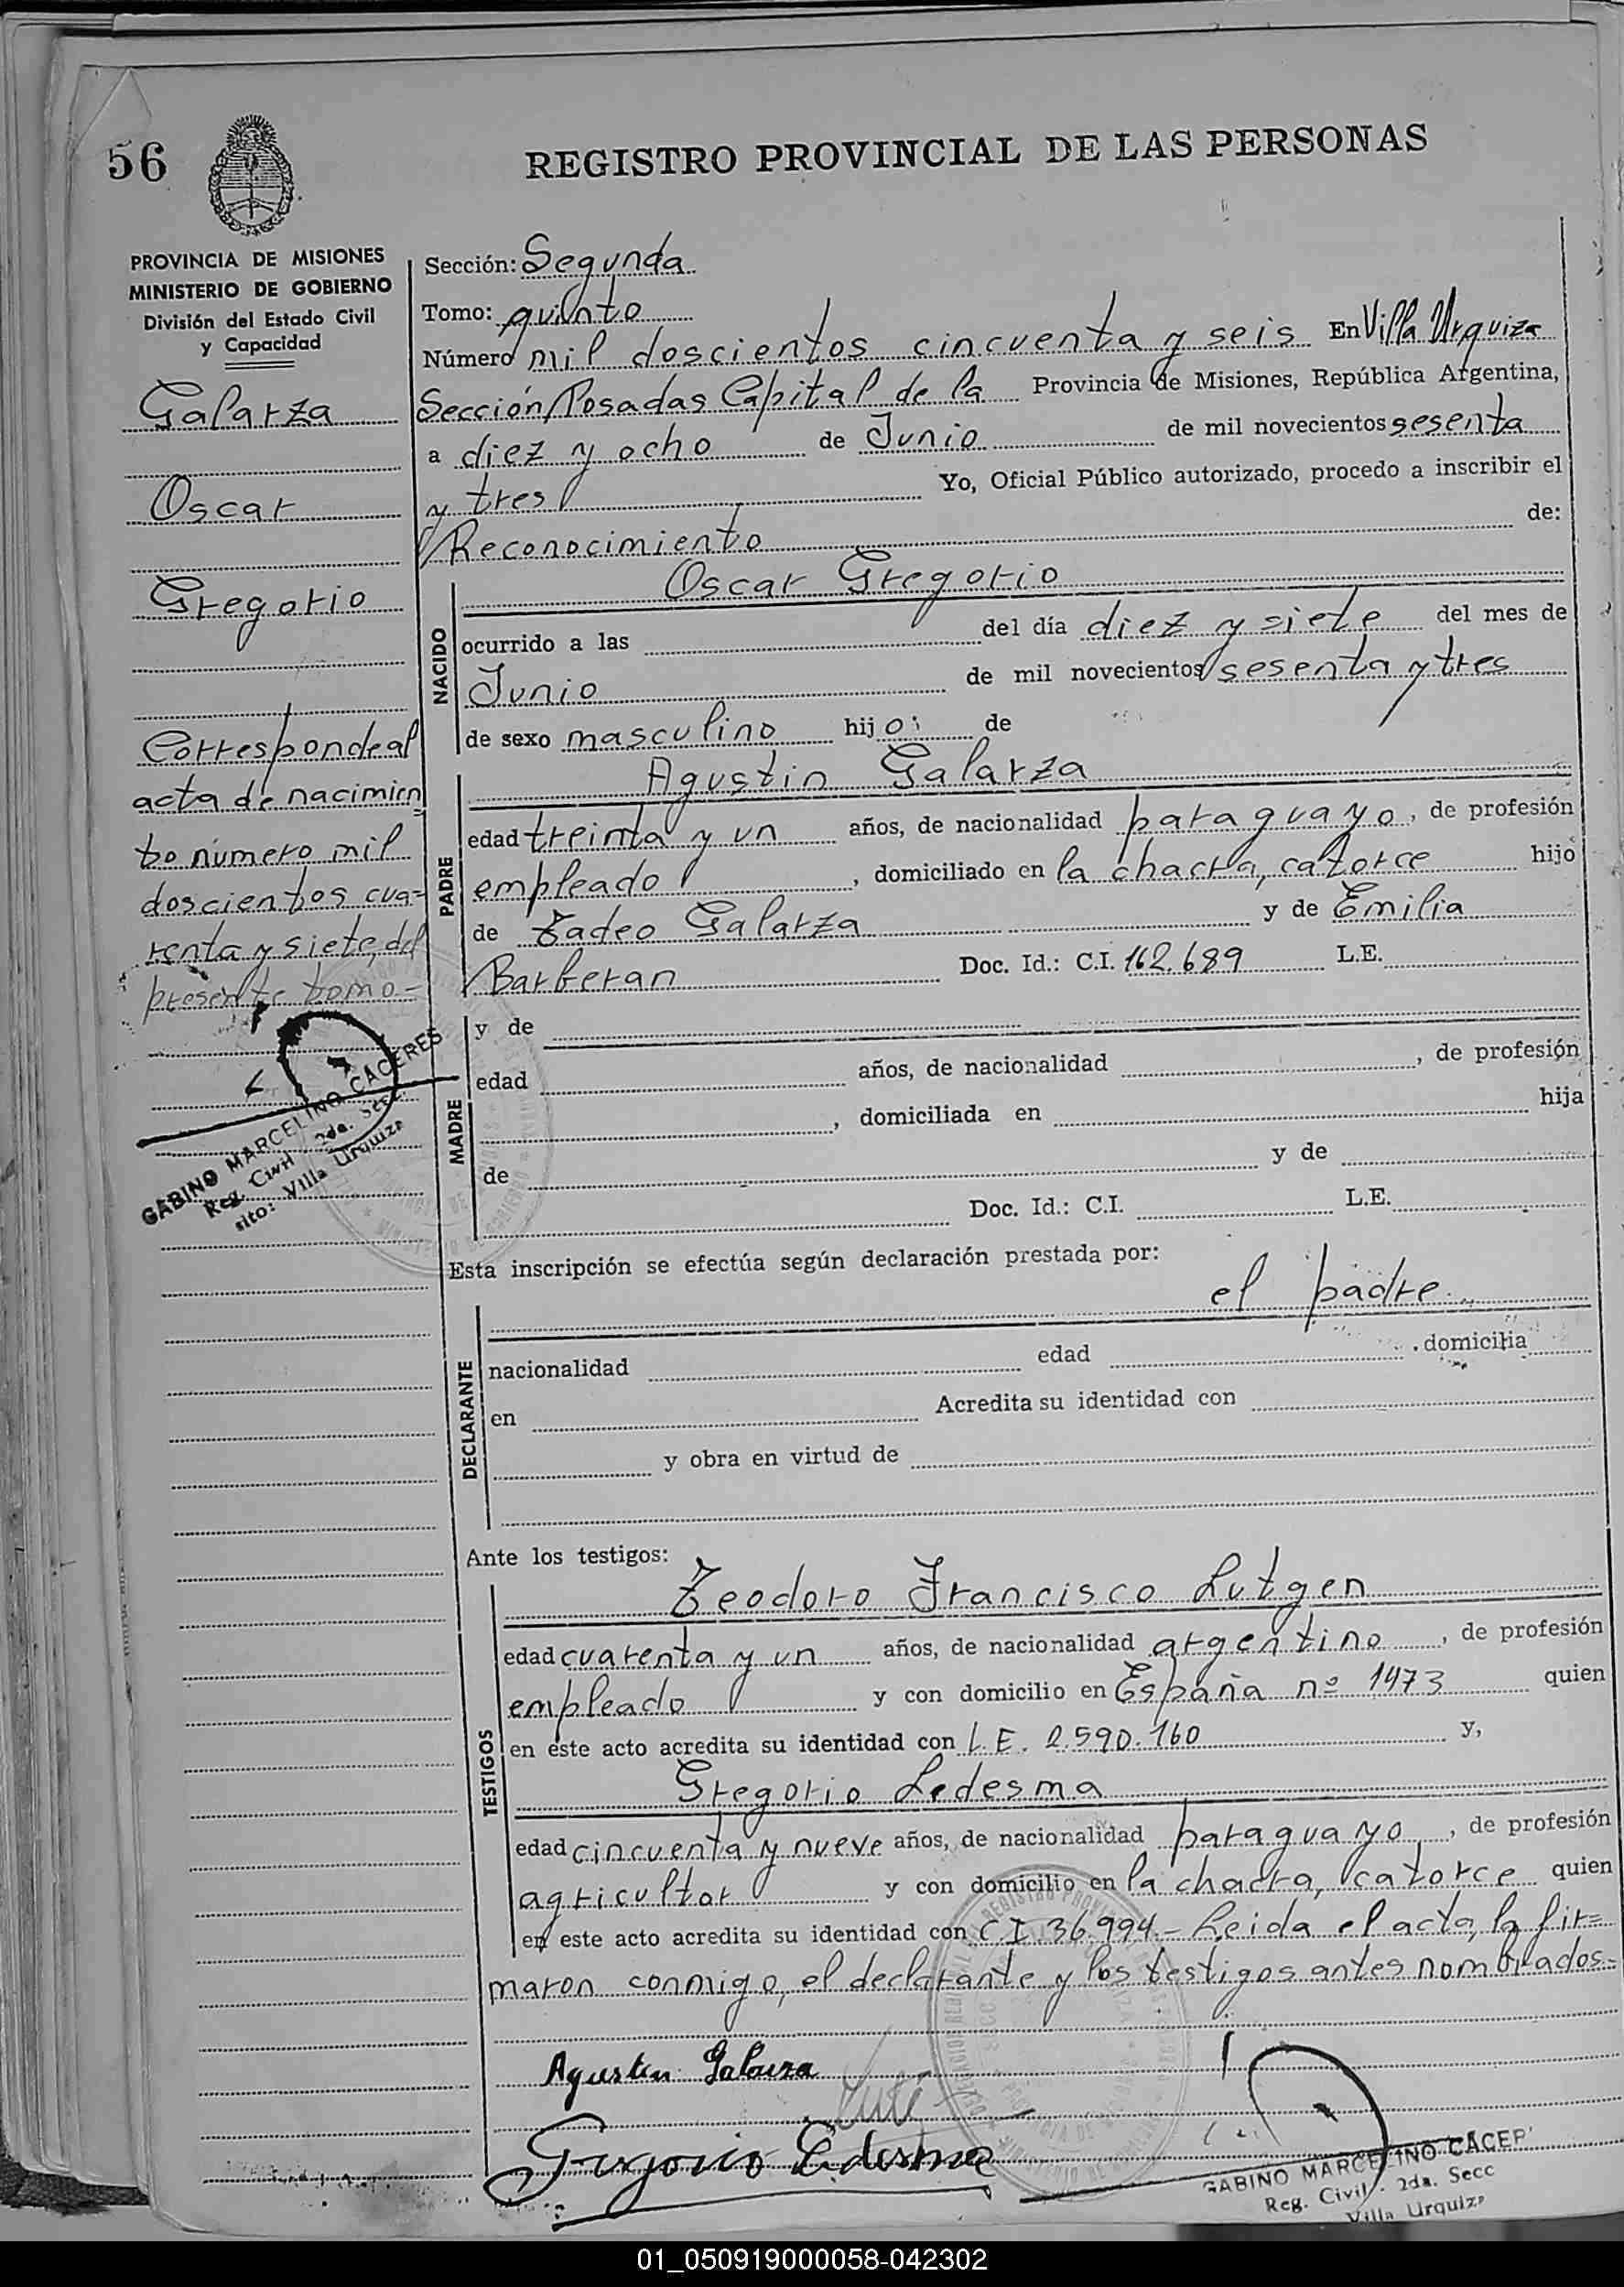 56
REGISTRO PROVINCIAL DE LAS PERSONAS
PROVINCIA DE MISIONES
MINISTERIO DE GOBIERNO
División del Estado Civil
y Capacidad
Galarza
Oscar
Gregorio
Corresponde al
acta de nacimien
to número mil
doscientos cua-
renta y siete, del
presente tomo-
GABINO MARCELINO CACERES
Reg. Civil - 2da. Secc.
Villa Urquiza
Sección: Segunda
Tomo: quinto
Número mil doscientos cincuenta y seis En Villa Urquiza
Sección Posadas Capital de la Provincia de Misiones, República Argentina,
a diez y ocho de Junio de mil novecientos sesenta
y tres Yo, Oficial Público autorizado, procedo a inscribir el
Reconocimiento de:
NACIDO
Oscar Gregorio
ocurrido a las del día diez y siete del mes de
Junio de mil novecientos sesenta y tres
de sexo masculino hijo: de
PADRE
Agustin Galarza
edad treinta y un años, de nacionalidad paraguayo, de profesión
empleado, domiciliado en la chacra, catorce hijo
de Tadeo Galarza y de Emilia
Barberan Doc. Id.: C.I. 162.689 L.E.
MADRE
y de
edad años, de nacionalidad , de profesión
, domiciliada en hija
de y de
Doc. Id.: C.I. L.E.
Esta inscripción se efectúa según declaración prestada por:
DECLARANTE
el padre.
nacionalidad edad , domicilia
en Acredita su identidad con
y obra en virtud de
Ante los testigos:
TESTIGOS
Teodoro Francisco Lutgen
edad cuarenta y un años, de nacionalidad argentino, de profesión
empleado y con domicilio en España nº 1473 quien
en este acto acredita su identidad con L.E. 2.590.160 y,
Gregorio Ledesma
edad cincuenta y nueve años, de nacionalidad paraguayo, de profesión
agricultor y con domicilio en la chacra, catorce quien
en este acto acredita su identidad con C.I. 36.994.- Leida el acta, la fir=
maron conmigo, el declarante y los testigos antes nombrados.=
Agustin Galarza
Gregorio Ledesma
GABINO MARCELINO CACER
Reg. Civil - 2da. Secc
Villa Urquiza
01_050919000058-042302